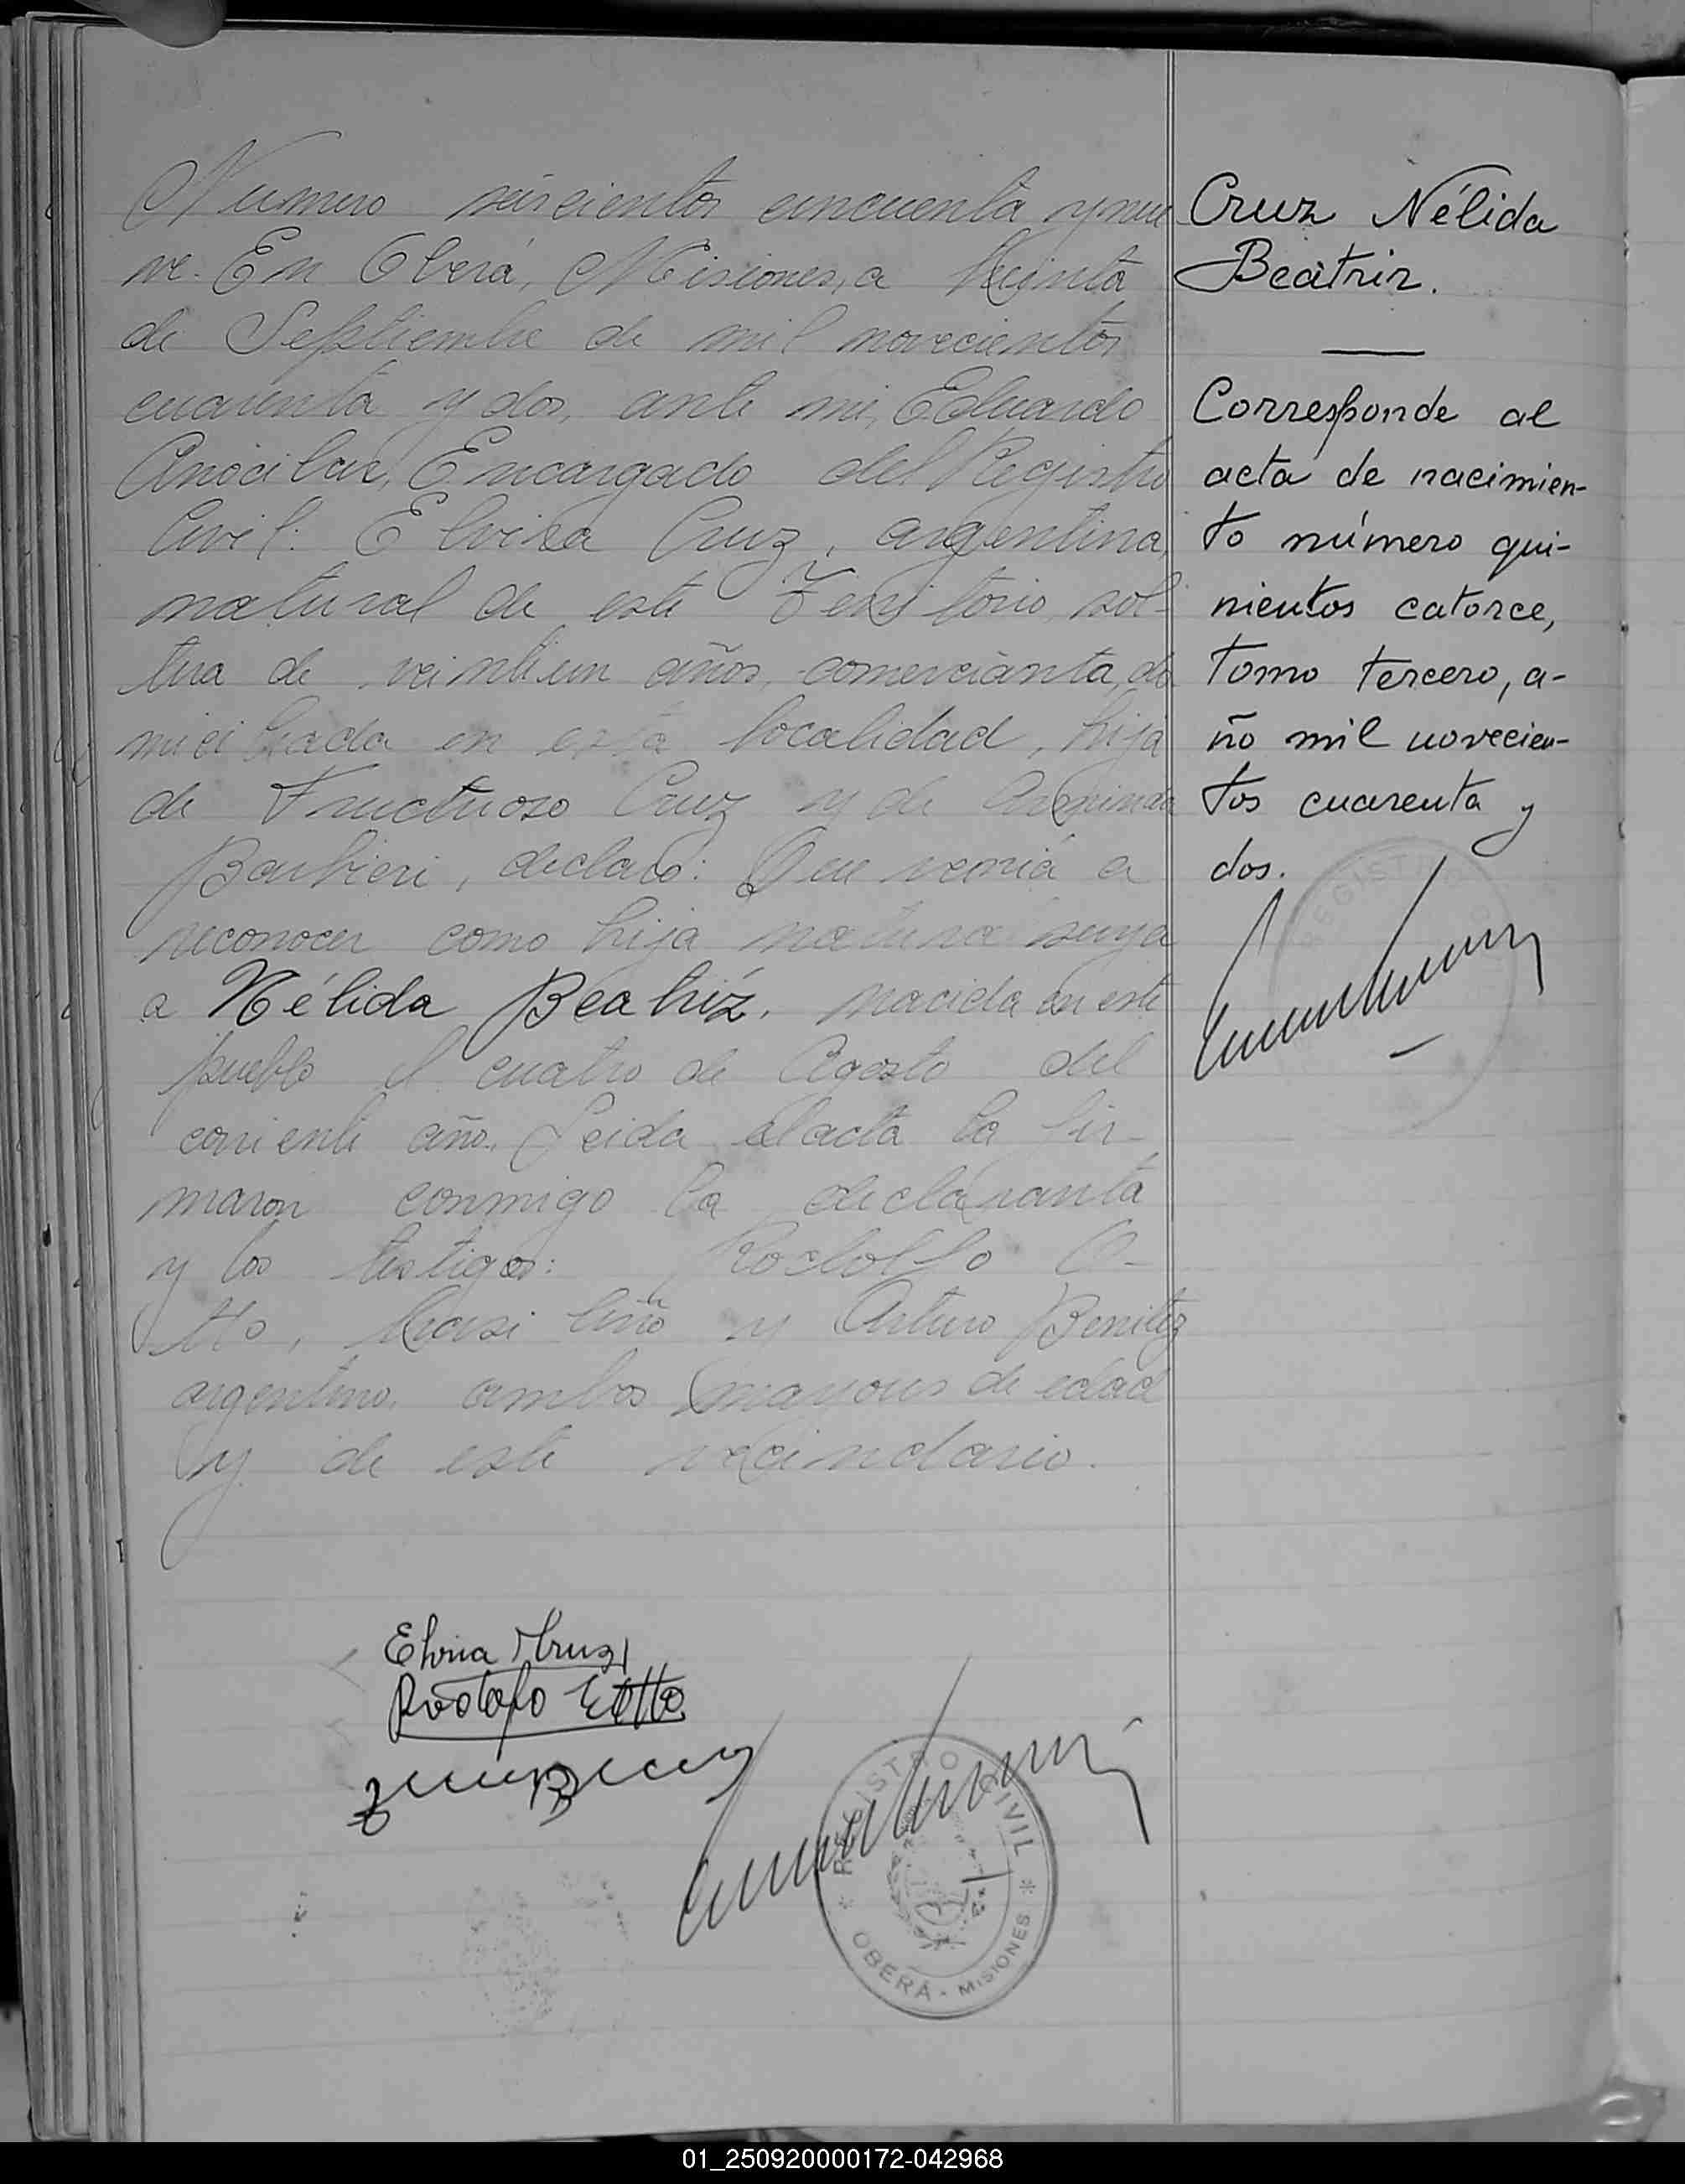 Numero seiscientos cincuenta y nue
ve. En Oberá, Misiones, a treinta
de Septiembre de mil novecientos
cuarenta y dos, ante mi, Eduardo
Encargado del Registro
Civil: Elvira Cruz, argentina,
natural de este Territorio, sol-
tera de veintiun años, comercianta, do
miciliada en esta localidad, hija
de Fructuoso Cruz y de
Barbieri, declaró: Que venia a
reconocer como hija natural suya
a Nélida Beatriz, nacida en este
pueblo el cuatro de Agosto del
corriente año. Leida el acta la fir-
maron conmigo la declaranta
y los testigos: Rodolfo O-
tto, brasileño y Arturo Benitez
argentino, ambos mayores de edad
y de este vecindario.
Cruz Nélida
Beatriz.
Corresponde al
acta de nacimien-
to número qui-
nientos catorce,
tomo tercero, a-
ño mil novecien-
tos cuarenta y
dos.
Elvira Cruz
Rodolfo Otto
REGISTRO CIVIL
OBERÁ - MISIONES
01_250920000172-042968